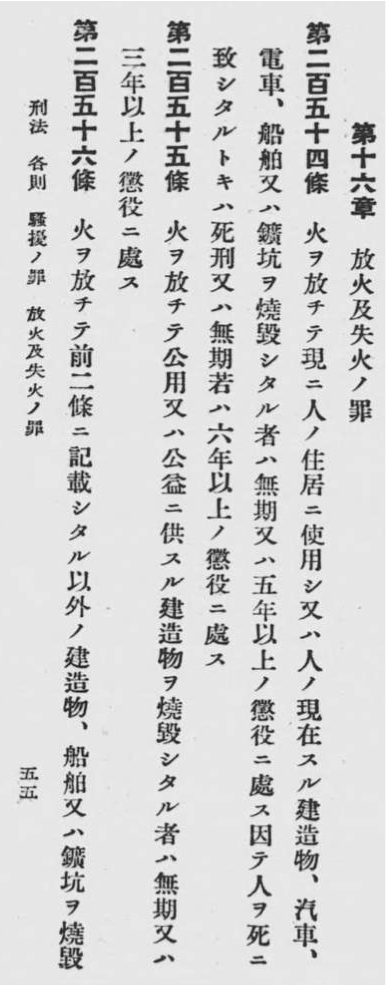 第十六章　放火及失火ノ罪
第二百五十四條　火ヲ放チテ現ニ人ノ住居ニ使用シ又ハ人ノ現在スル建造物、汽車、
電車、船舶又ハ鑛坑ヲ燒毀シタル者ハ無期又ハ五年以上ノ懲役ニ處ス因テ人ヲ死ニ
致シタルトキハ死刑又ハ無期若ハ六年以上ノ懲役ニ處ス
第二百五十五條　火ヲ放チテ公用又ハ公益ニ供スル建造物ヲ燒毀シタル者ハ無期又ハ
三年以上ノ懲役ニ處ス
第二百五十六條　火ヲ放チテ前二條ニ記載シタル以外ノ建造物、船舶又ハ鑛坑ヲ燒毀
刑法　各則　騷擾ノ罪　放火及失火ノ罪
五五